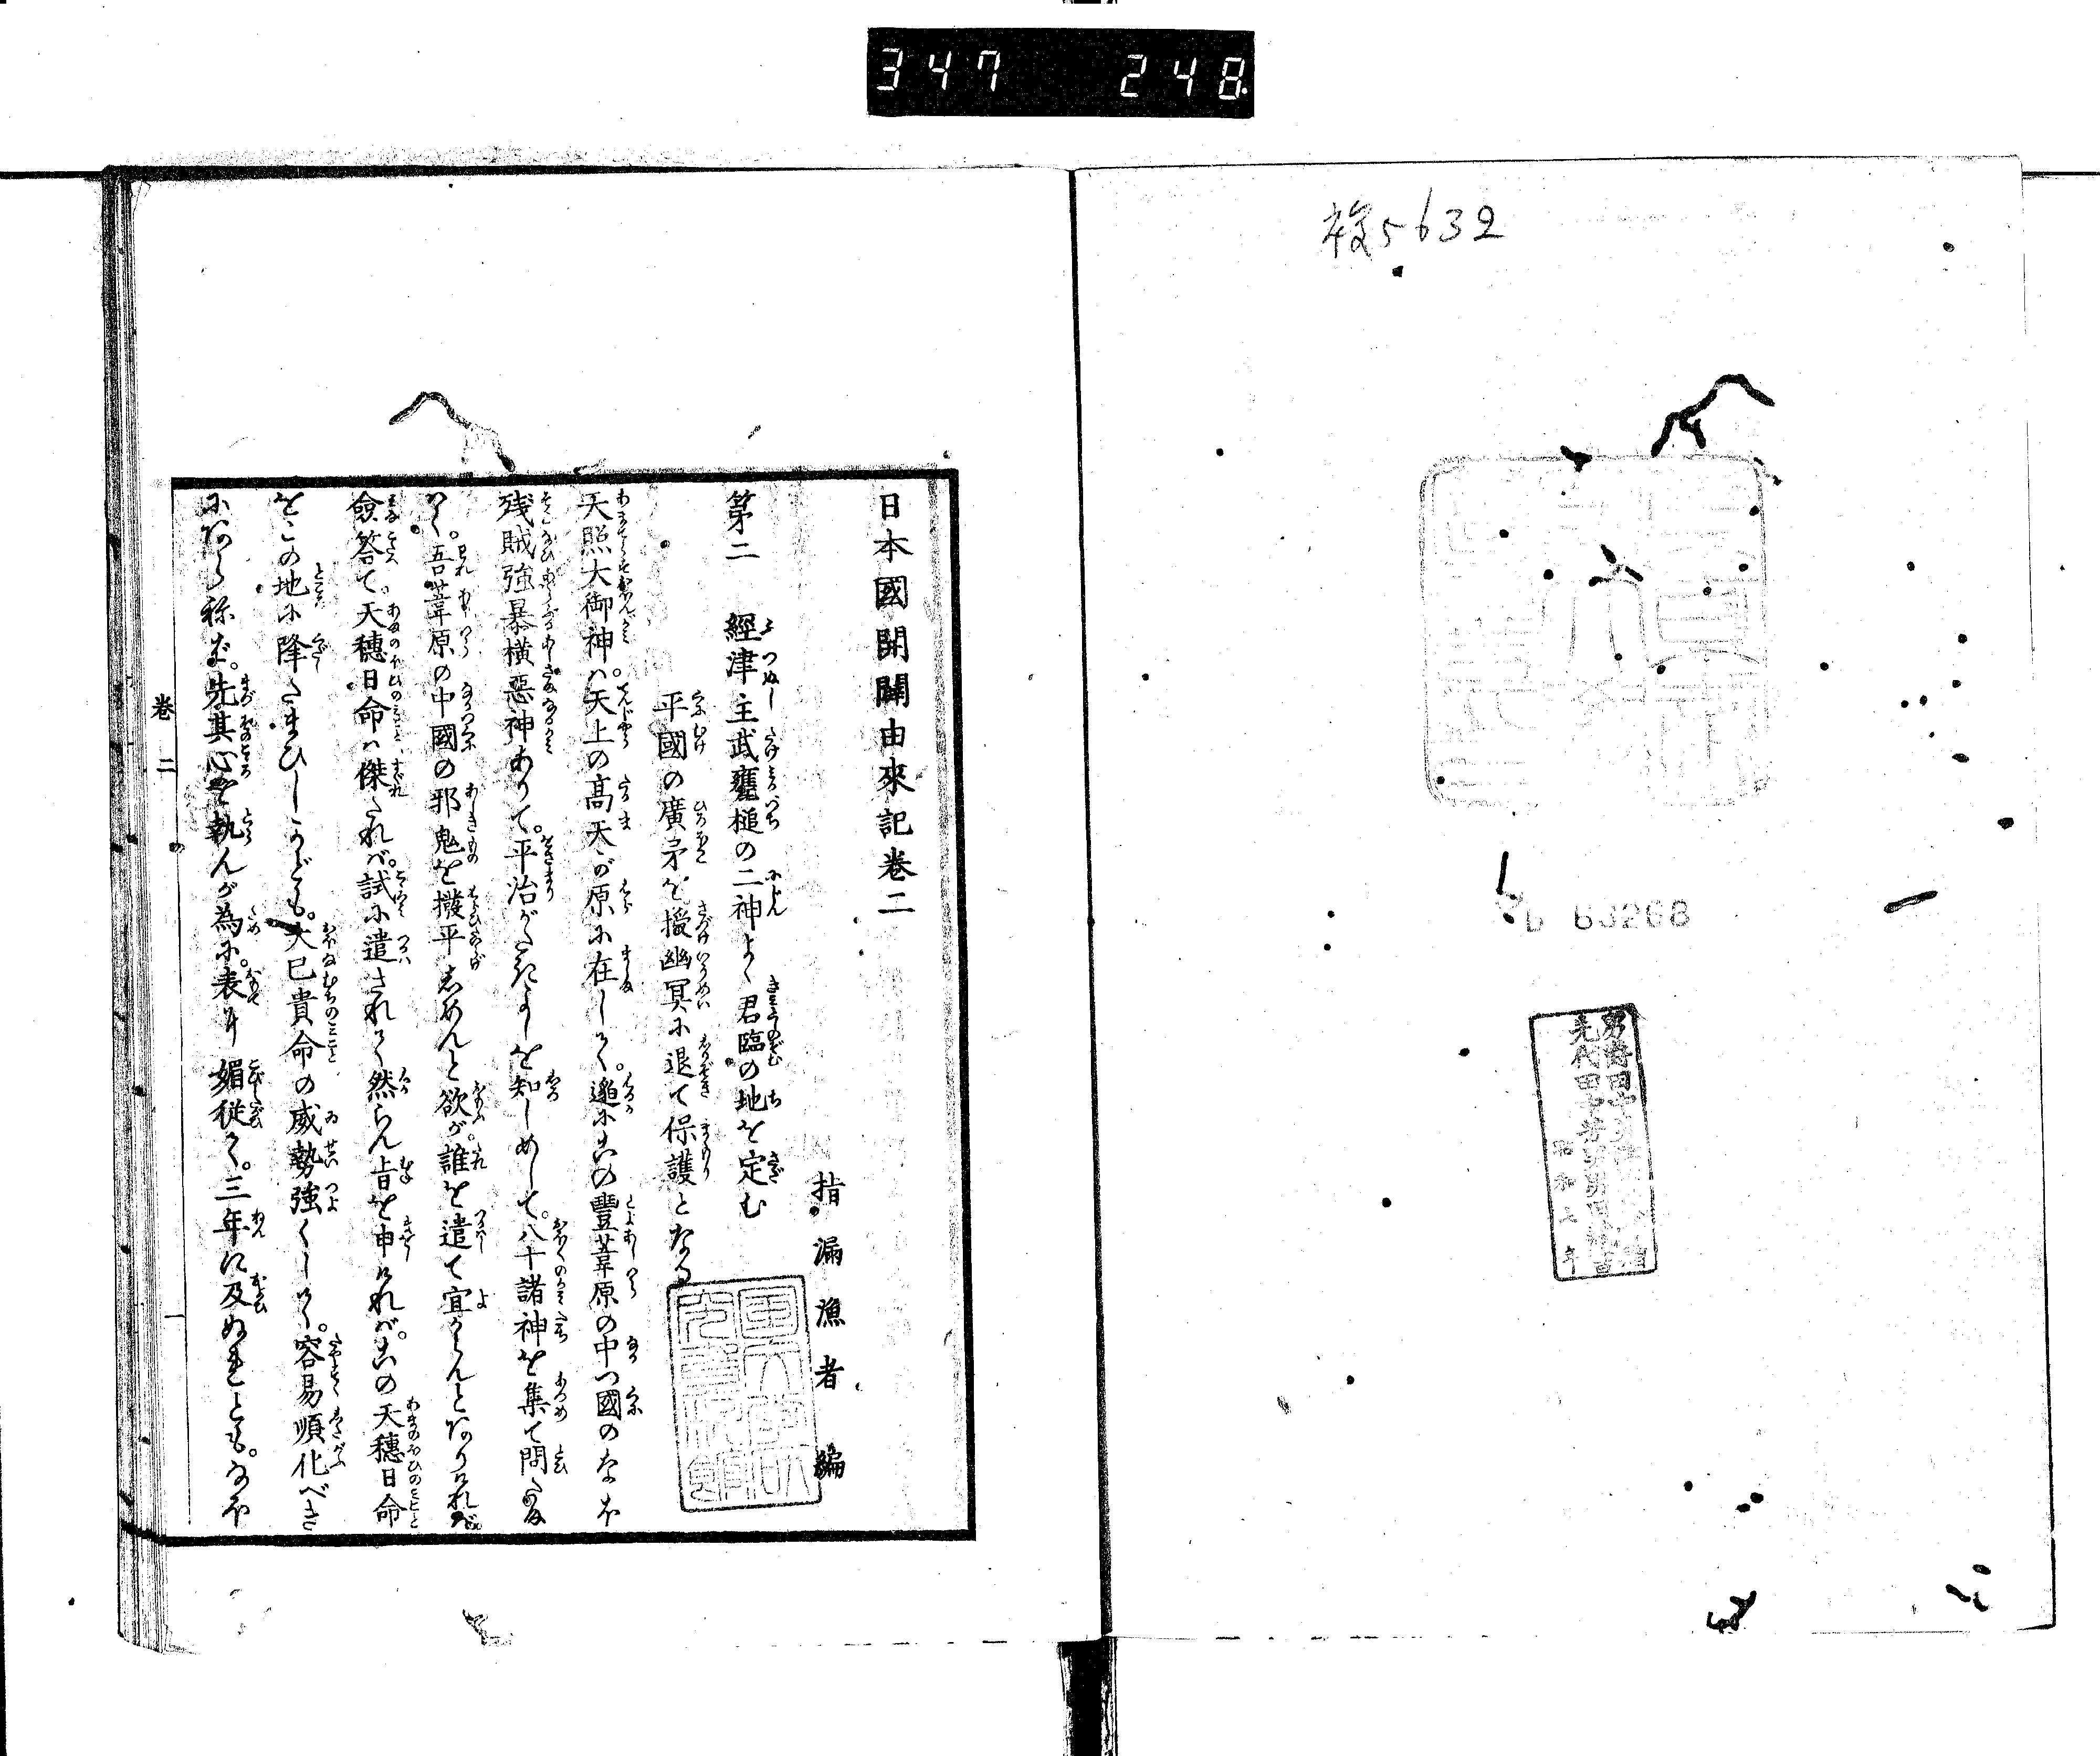 347 248
校5632
63268
日本國開闢由來記巻二
指漏漁者編
第二 經津主武甕槌の二神よく君臨の地を定む
平國の廣矛を授幽冥に退て保護となる
天照大御神ハ。天上の高天が原に在しまく。遙に此の豐葦原の中つ國のなほ
残賊強暴横惡神ありて。平治がたきよしを知しめして。八十諸神を集て問たま
はく。吾葦原の中國の邪鬼を撥平しめんと欲が。誰を遣て宜からんとありければ。
僉答て。天穗日命ハ傑たれバ。試に遣されて然らん旨を申けれバ。此の天穗日命
をこの地に降したまひしかども。大己貴命の威勢強くしけく。容易順化べき
にあらねば。先其心を執んが為に。表に媚従て。三年に及ぬれども。なほ
巻二
一